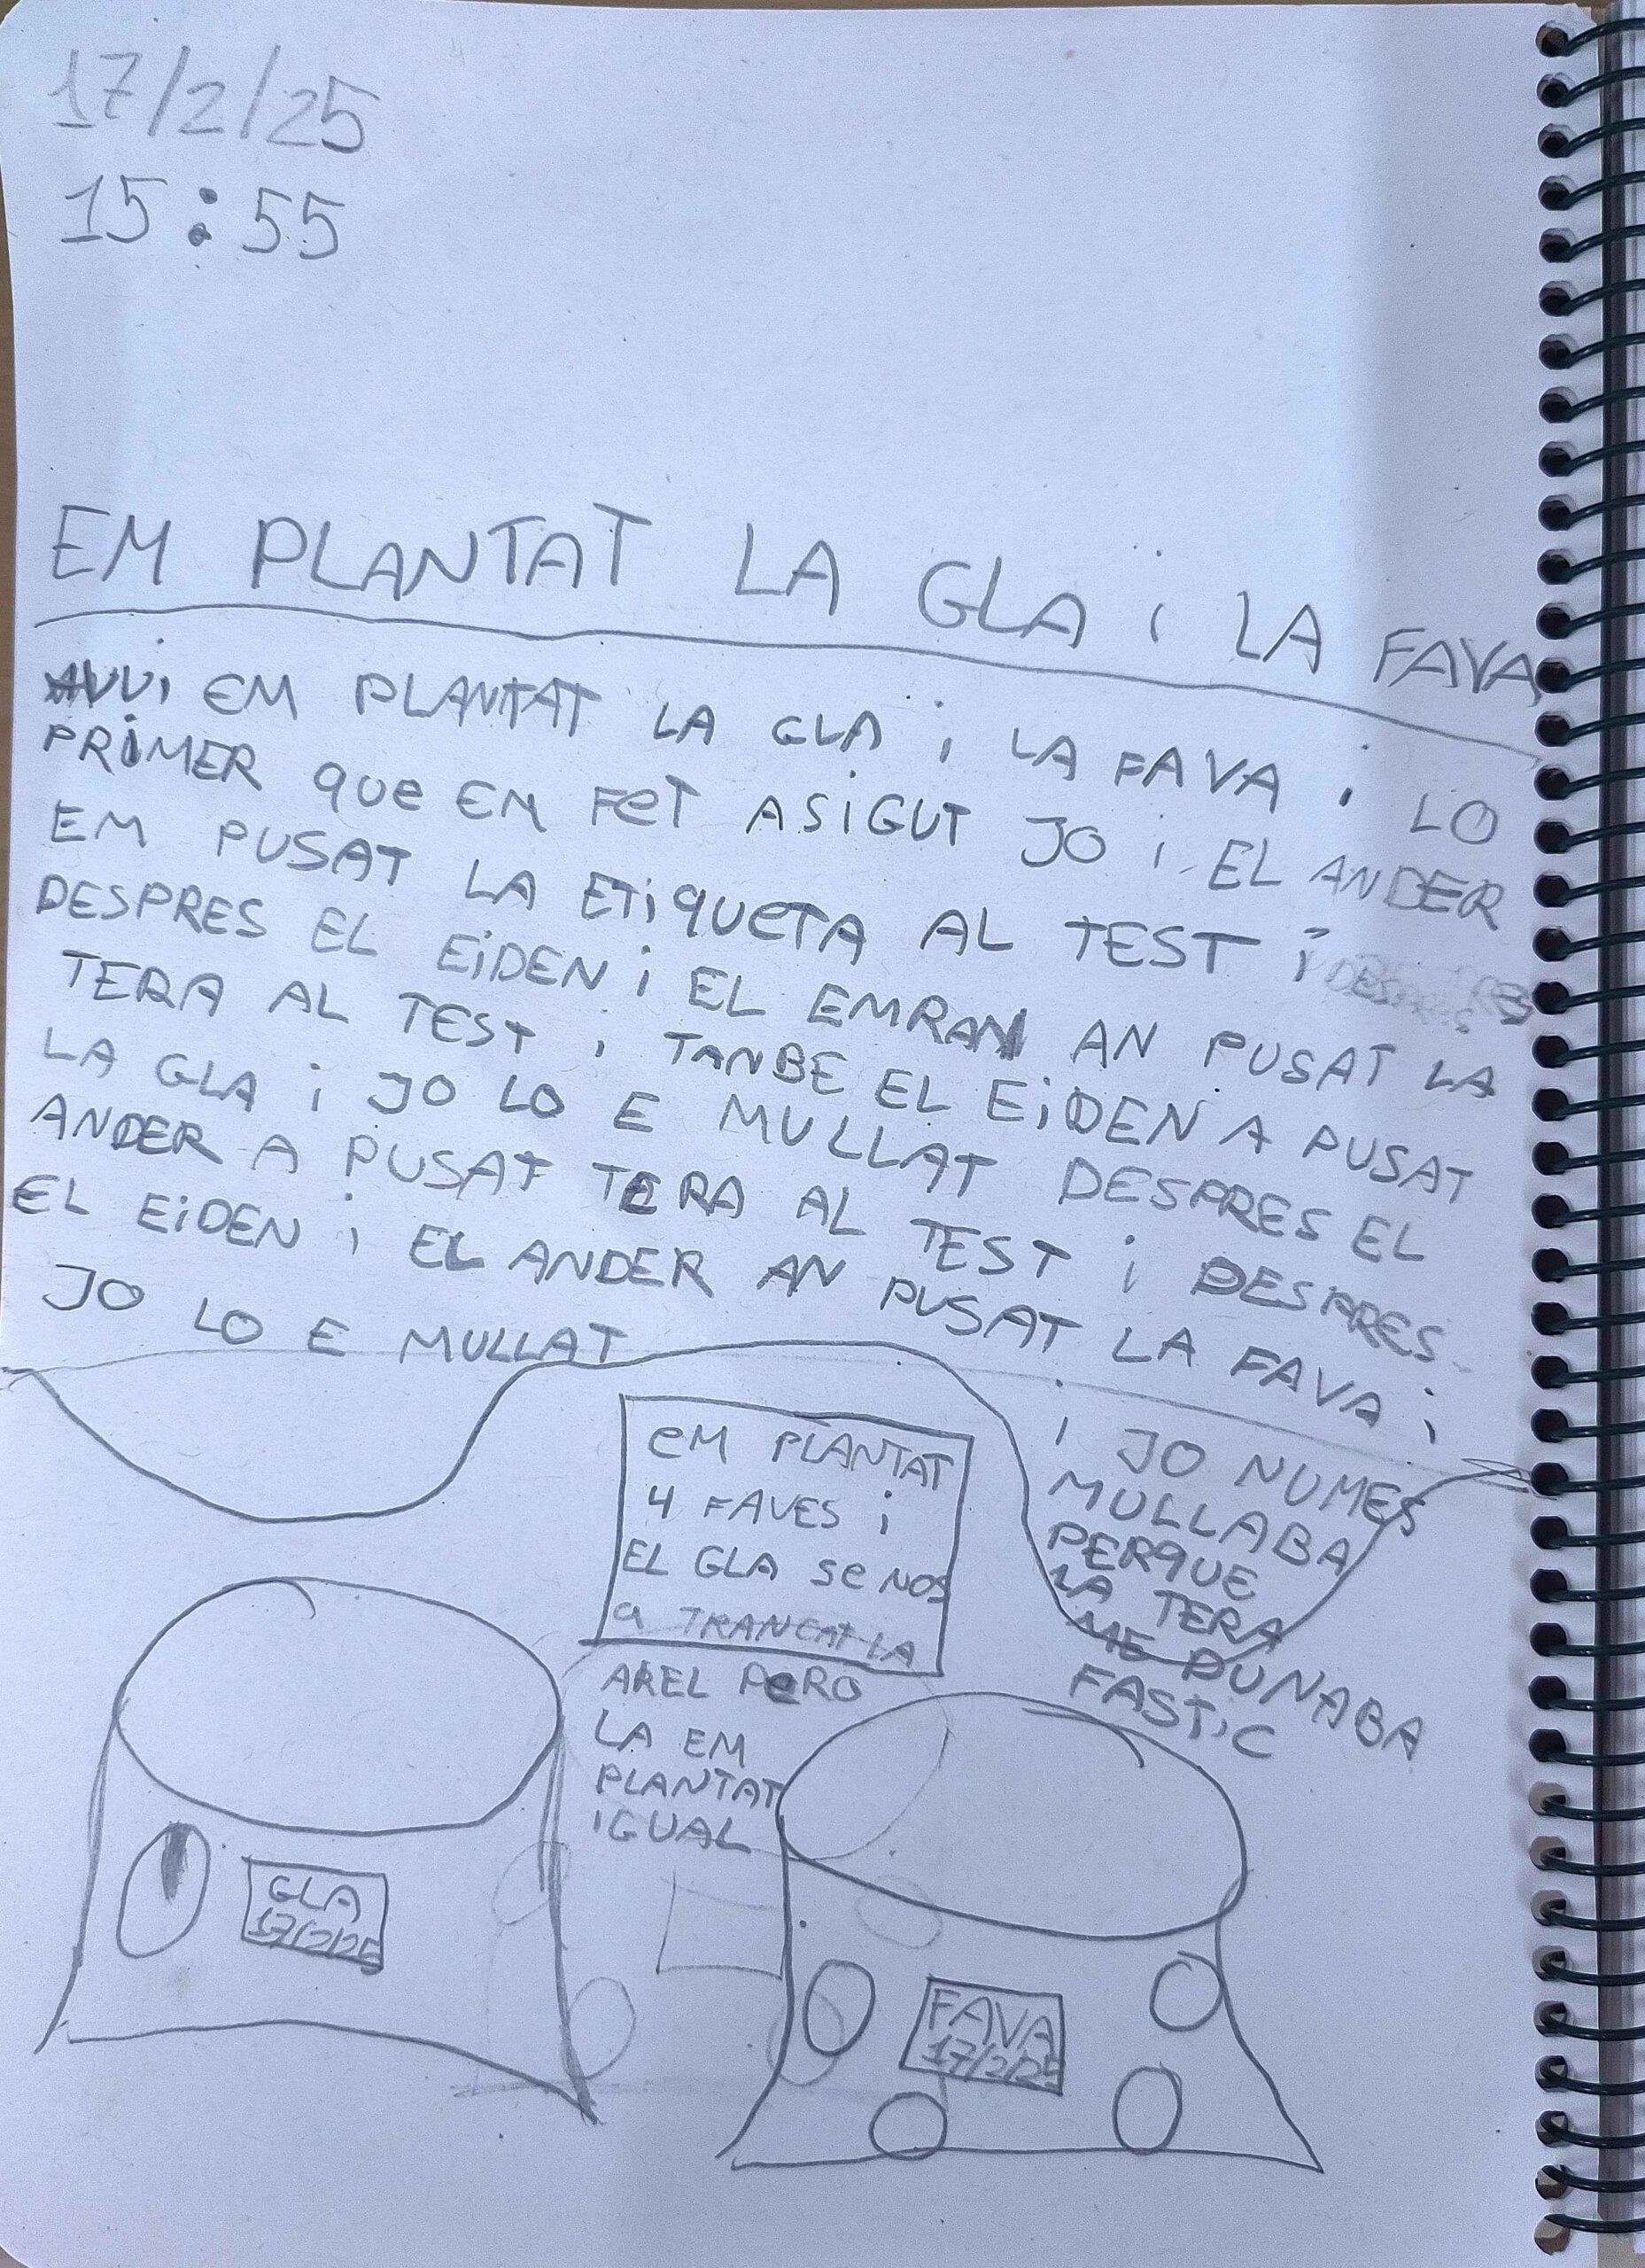 17/2/25
15:55
EM PLANTAT LA GLA i LA FAVA
AVVi EM PLANTAT LA GLA i LA FAVA i LO
PRiMER que EM FeT ASiGUT JO i EL ANDER
EM PUSAT LA ETiqueTA AL TEST i
DESPRES EL EiDEN i EL EMRAN AN PUSAT LA
TERA AL TEST i TANBE EL EiDEN A PUSAT
LA GLA i JO LO E MULLAT DESPRES EL
ANDER A PUSAT TERA AL TEST i DESPRES
EL EiDEN i EL ANDER AN PUSAT LA FAVA i
JO LO E MULLAT
eM PLANTAT
4 FAVES i
EL GLA Se NOS
a TRANCAT LA
AREL PeRO
LA EM
PLANTAT
iGUAL
i JO NUMES
MULLABA
PERQUE
LA TERA
ME DUNABA
FASTiC
GLA
17/2/25
FAVA
17/2/25